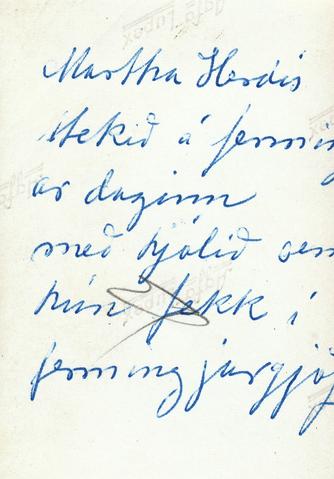 Martha Herdís
tekið á fermin
ar daginn
með hjólið sem
hún fekk í
fermingjargjöf